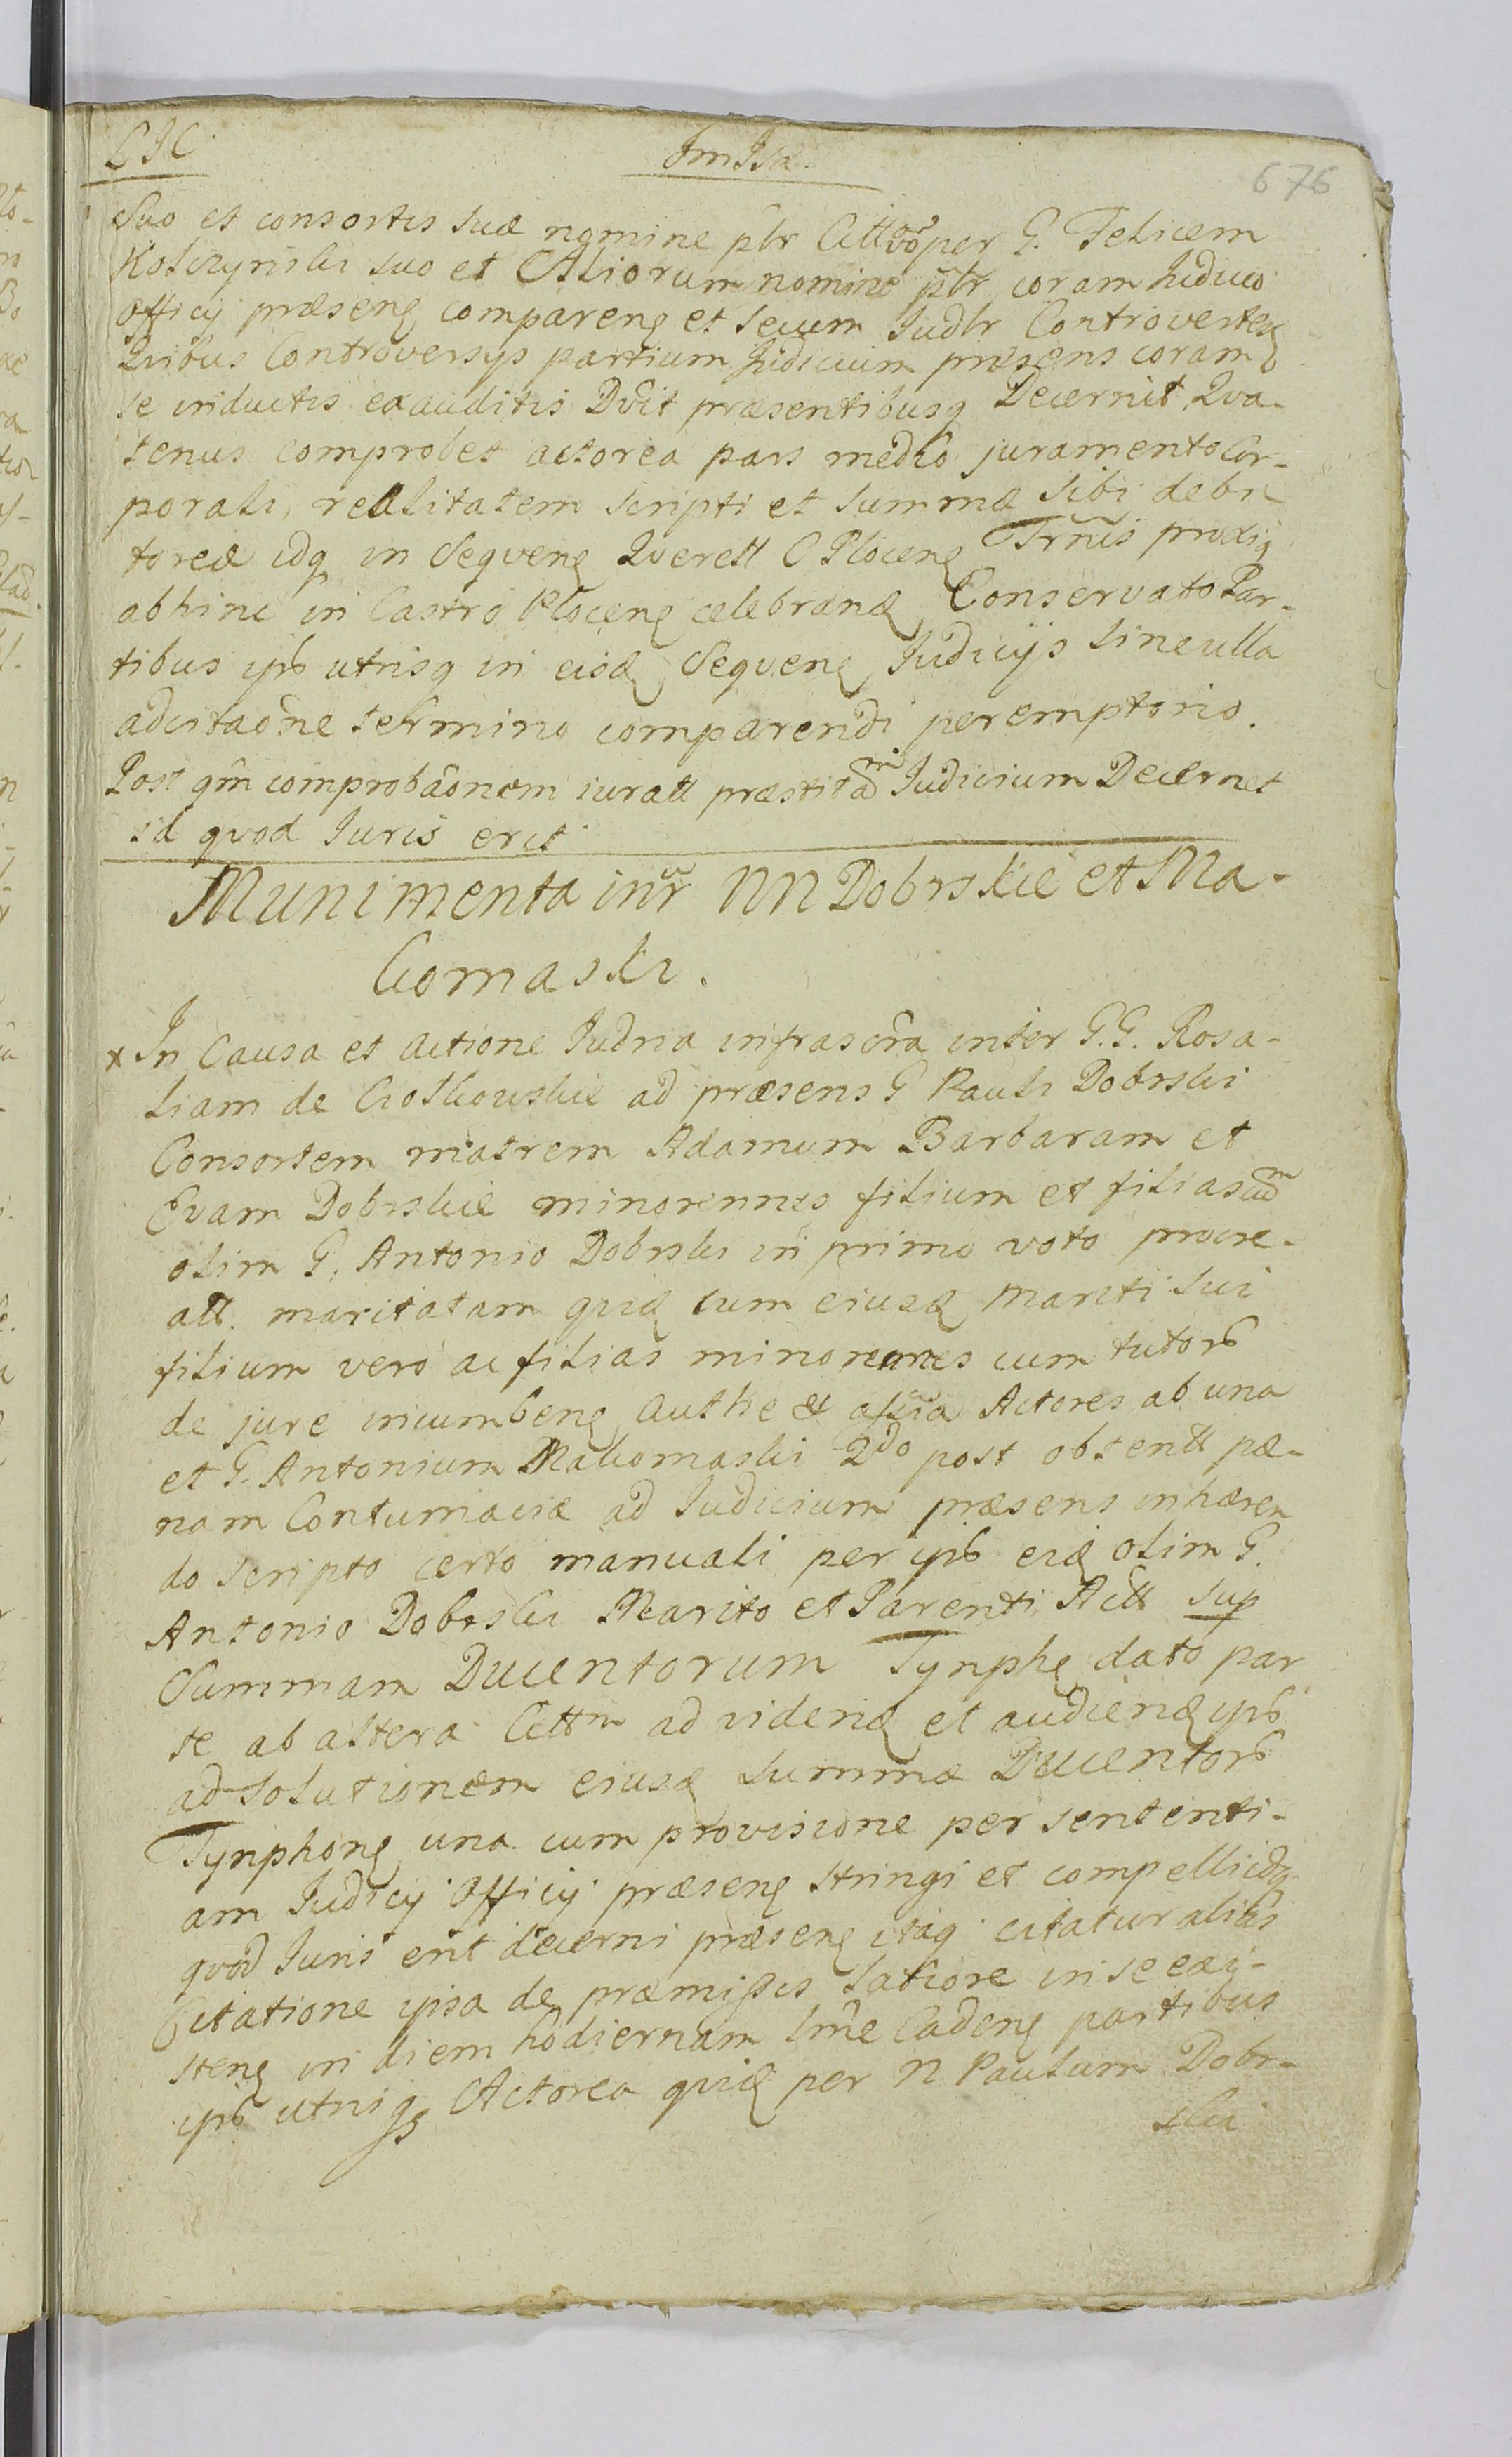 676
Suo et consortis suæ nomine plr Citt per G. Felicem
suo et Aliorum nomine plr coram Judicio
officij præsenę comparenę et secum Judlr Controverten
Quibus Controversijs partium Judicium præsens coram
se inductis exauditis Duit præsentibusq Decernit, Qua-
tenus comprobet actorea pars medio juramento Cor-
porali, realitatem scripti et summæ sibi debi
toreæ idq in Sequenę Querell C Plocenę Trnis proxi
abhinc in Castro Plocenę celebranę Conservato Par-
tibus ipb utrisq in eisd Sequenę Judicijs sine ulla
adcitaône termino comparendi peremptorio.
Post qm comprobâonem juratt præstitam Judicium Decernet
id quod Juris erit
Munimenta intr NN Dobrskie et Ma-
komaski.
x In Causa et actione Judria infrascra inter G.G. Rosa-
liam de ad præsens G Pauli Dobrski
Consortem matrem Adamum Barbaram et
Evam Dobrskie minorennes filium et filias cum
olim G. Antonio Dobrski in primo voto procre-
att. maritatam quid cum eiusd Mariti sui
filium vero ac filias minorennes cum tutorb
de jure incumbenę Authe & assia Actores ab una
et G. Antonium Makomaski 2do post obtentt pæ-
nam Contumaciæ ad Judicium præsens inhæren
do scripto certo manuali per ipb eid olim G.
Antonio Dobrski Marito et Parenti Actt sup
Summam Ducentorum Tynphę dato par
te ab altera Cittm ad videnđ et audienđ ipb
ad solutionem eiusd summæ Ducentorb
Tynphonę una cum provisione per sententi-
am Judicij Officij præsenę stringi et compelli idq
quod Juris erit decerni præsenę itaq citatur alias
Citatione ipsa de præmissis latiore in se exi-
stenę in diem hodiernam lme Cadenę partibus
ipb utrisq Actorea quid per N Paulum Dobr-
ski